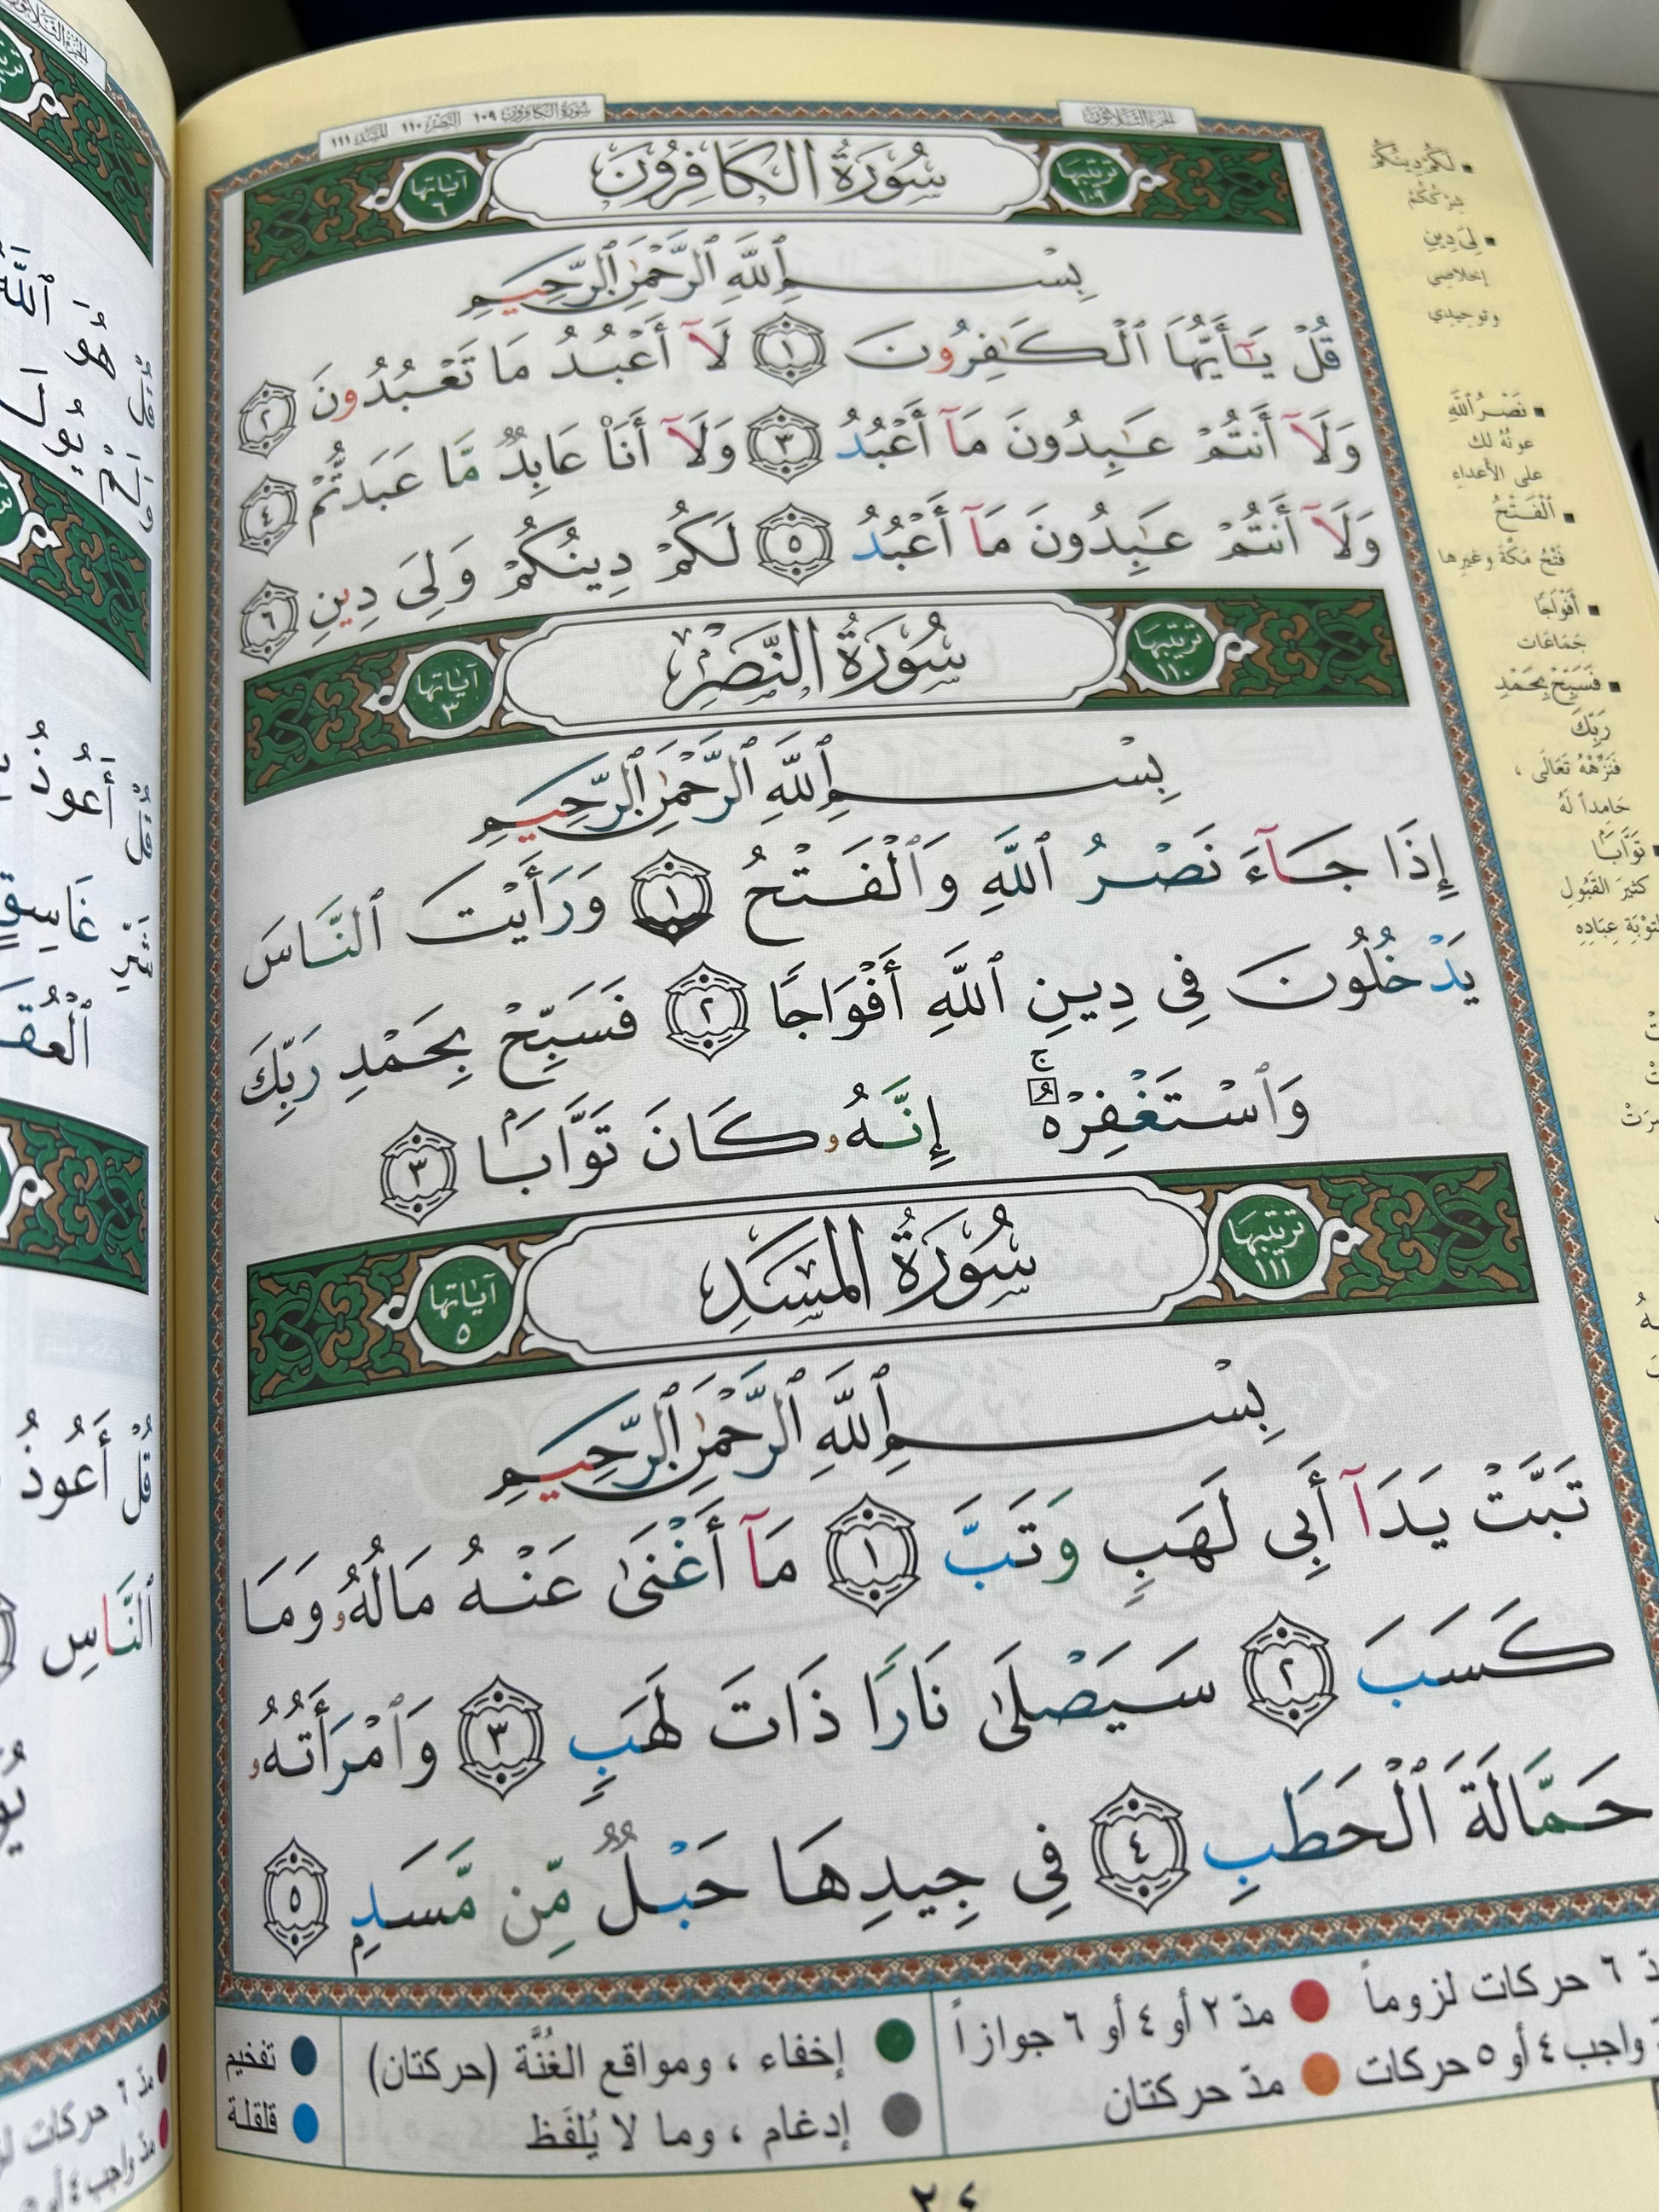 الجزء الثلاثون
سورة الكافرون ١٠٩ النصر ١١٠ المسد ١١١
ترتيبها ١٠٩ سُورَةُ الكَافِرُونَ آياتها ٦
بِسْمِ ٱللَّهِ ٱلرَّحْمَٰنِ ٱلرَّحِيمِ
قُلْ يَـٰٓأَيُّهَا ٱلْكَـٰفِرُونَ ١ لَآ أَعْبُدُ مَا تَعْبُدُونَ ٢
وَلَآ أَنتُمْ عَـٰبِدُونَ مَآ أَعْبُدُ ٣ وَلَآ أَنَا۠ عَابِدٌ مَّا عَبَدتُّمْ ٤
وَلَآ أَنتُمْ عَـٰبِدُونَ مَآ أَعْبُدُ ٥ لَكُمْ دِينُكُمْ وَلِىَ دِينِ ٦
ترتيبها ١١٠ سُورَةُ النَّصْرِ آياتها ٣
بِسْمِ ٱللَّهِ ٱلرَّحْمَٰنِ ٱلرَّحِيمِ
إِذَا جَآءَ نَصْرُ ٱللَّهِ وَٱلْفَتْحُ ١ وَرَأَيْتَ ٱلنَّاسَ
يَدْخُلُونَ فِى دِينِ ٱللَّهِ أَفْوَاجًا ٢ فَسَبِّحْ بِحَمْدِ رَبِّكَ
وَٱسْتَغْفِرْهُ ۚ إِنَّهُۥ كَانَ تَوَّابَۢا ٣
ترتيبها ١١١ سُورَةُ المَسَدِ آياتها ٥
بِسْمِ ٱللَّهِ ٱلرَّحْمَٰنِ ٱلرَّحِيمِ
تَبَّتْ يَدَآ أَبِى لَهَبٍ وَتَبَّ ١ مَآ أَغْنَىٰ عَنْهُ مَالُهُۥ وَمَا
كَسَبَ ٢ سَيَصْلَىٰ نَارًا ذَاتَ لَهَبٍ ٣ وَٱمْرَأَتُهُۥ
حَمَّالَةَ ٱلْحَطَبِ ٤ فِى جِيدِهَا حَبْلٌ مِّن مَّسَدٍۭ ٥
▪ لَكُمْ دِينُكُمْ
شِرْكُكُمْ
▪ لِىَ دِينِ
إخلاصي
وتوحيدي
▪ نَصْرُ ٱللَّهِ
عونُهُ لك
على الأعداءِ
▪ ٱلْفَتْحُ
فَتْحُ مَكَّةَ وغيرِها
▪ أَفْوَاجًا
جَمَاعَات
▪ فَسَبِّحْ بِحَمْدِ
رَبِّكَ
فَنَزِّهْهُ تَعَالَى ،
حَامِداً لَهُ
▪ تَوَّابَۢا
كثيرَ القَبُولِ
لتوْبَةِ عِبَادِهِ
٦ حركات لزوماً ● مدّ ٢ أو ٤ أو ٦ جوازاً
واجب ٤ أو ٥ حركات ● مدّ حركتان
● إخفاء ، ومواقع الغُنَّة (حركتان)
● إدغام ، وما لا يُلفَظ
● تفخيم
● قلقلة
هُوَ ٱللَّهُ
أَعُوذُ
غَاسِقٍ
قُلْ أَعُوذُ
ٱلنَّاسِ